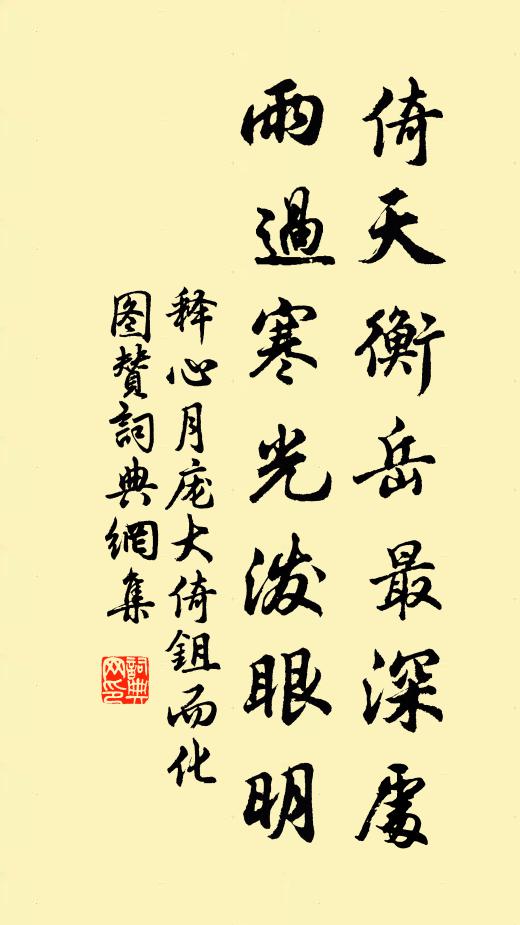 倚天衡岳最深處
雨過寒光潑眼明
释心月庞大倚鉏而化
图赞詞典網集
詞典
网印